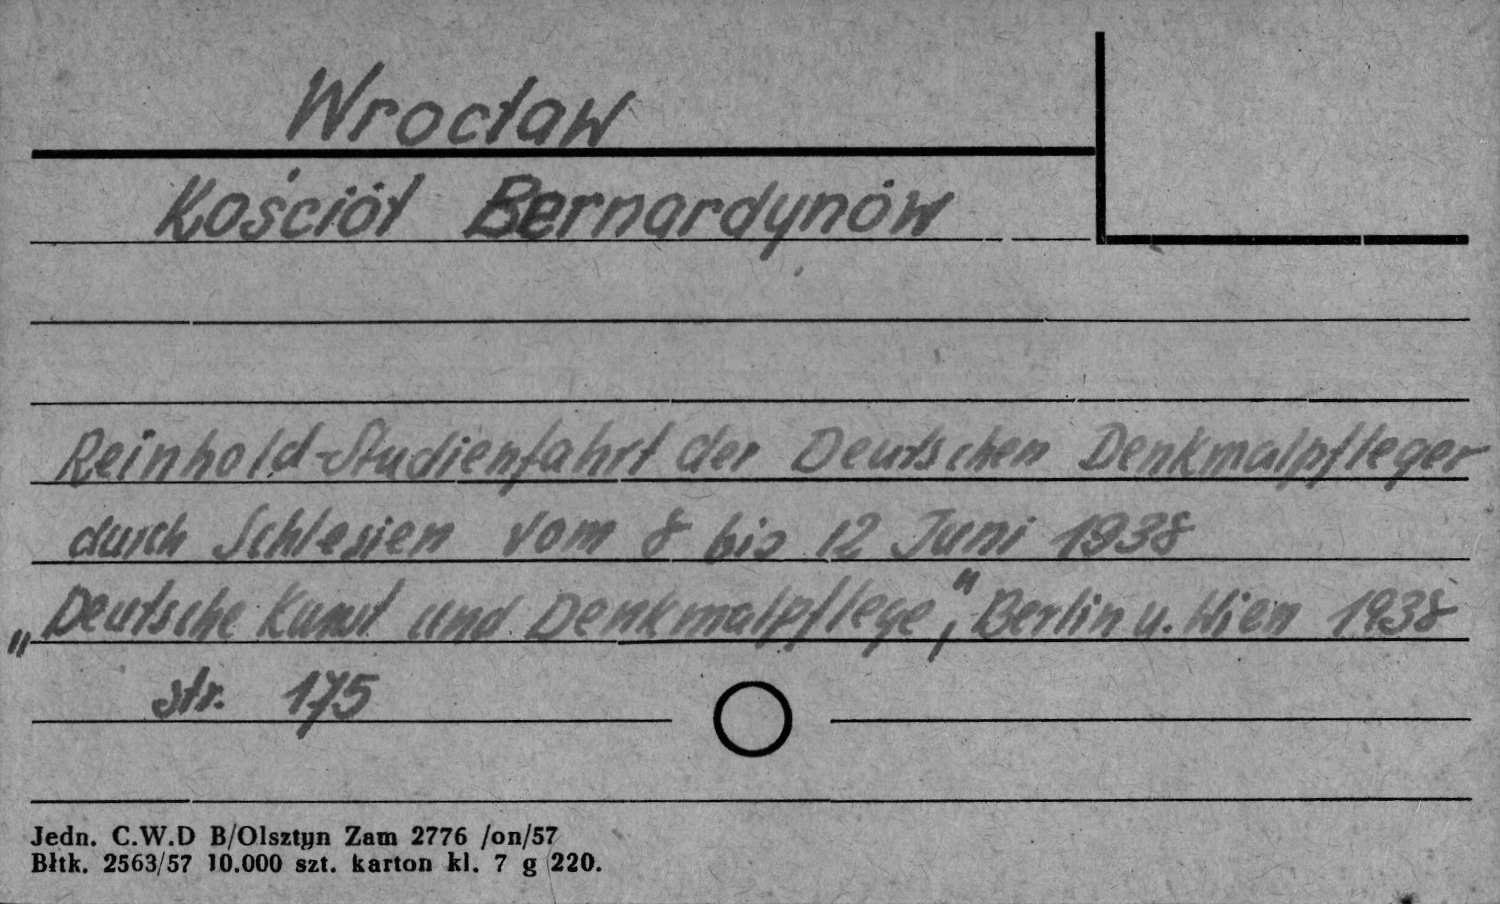 Wrocław
Kościół Bernardynów
Reinhold-Studienfahrt der Deutschen Denkmalpfleger
durch Schlesien vom 8 bis 12 Juni 1938
„Deutsche Kunst und Denkmalpflege", Berlin u. Wien 1938
str. 175
Jedn. C.W.D B/Olsztyn Zam 2776 /on/57
Błtk. 2563/57 10.000 szt. karton kl. 7 g 220.